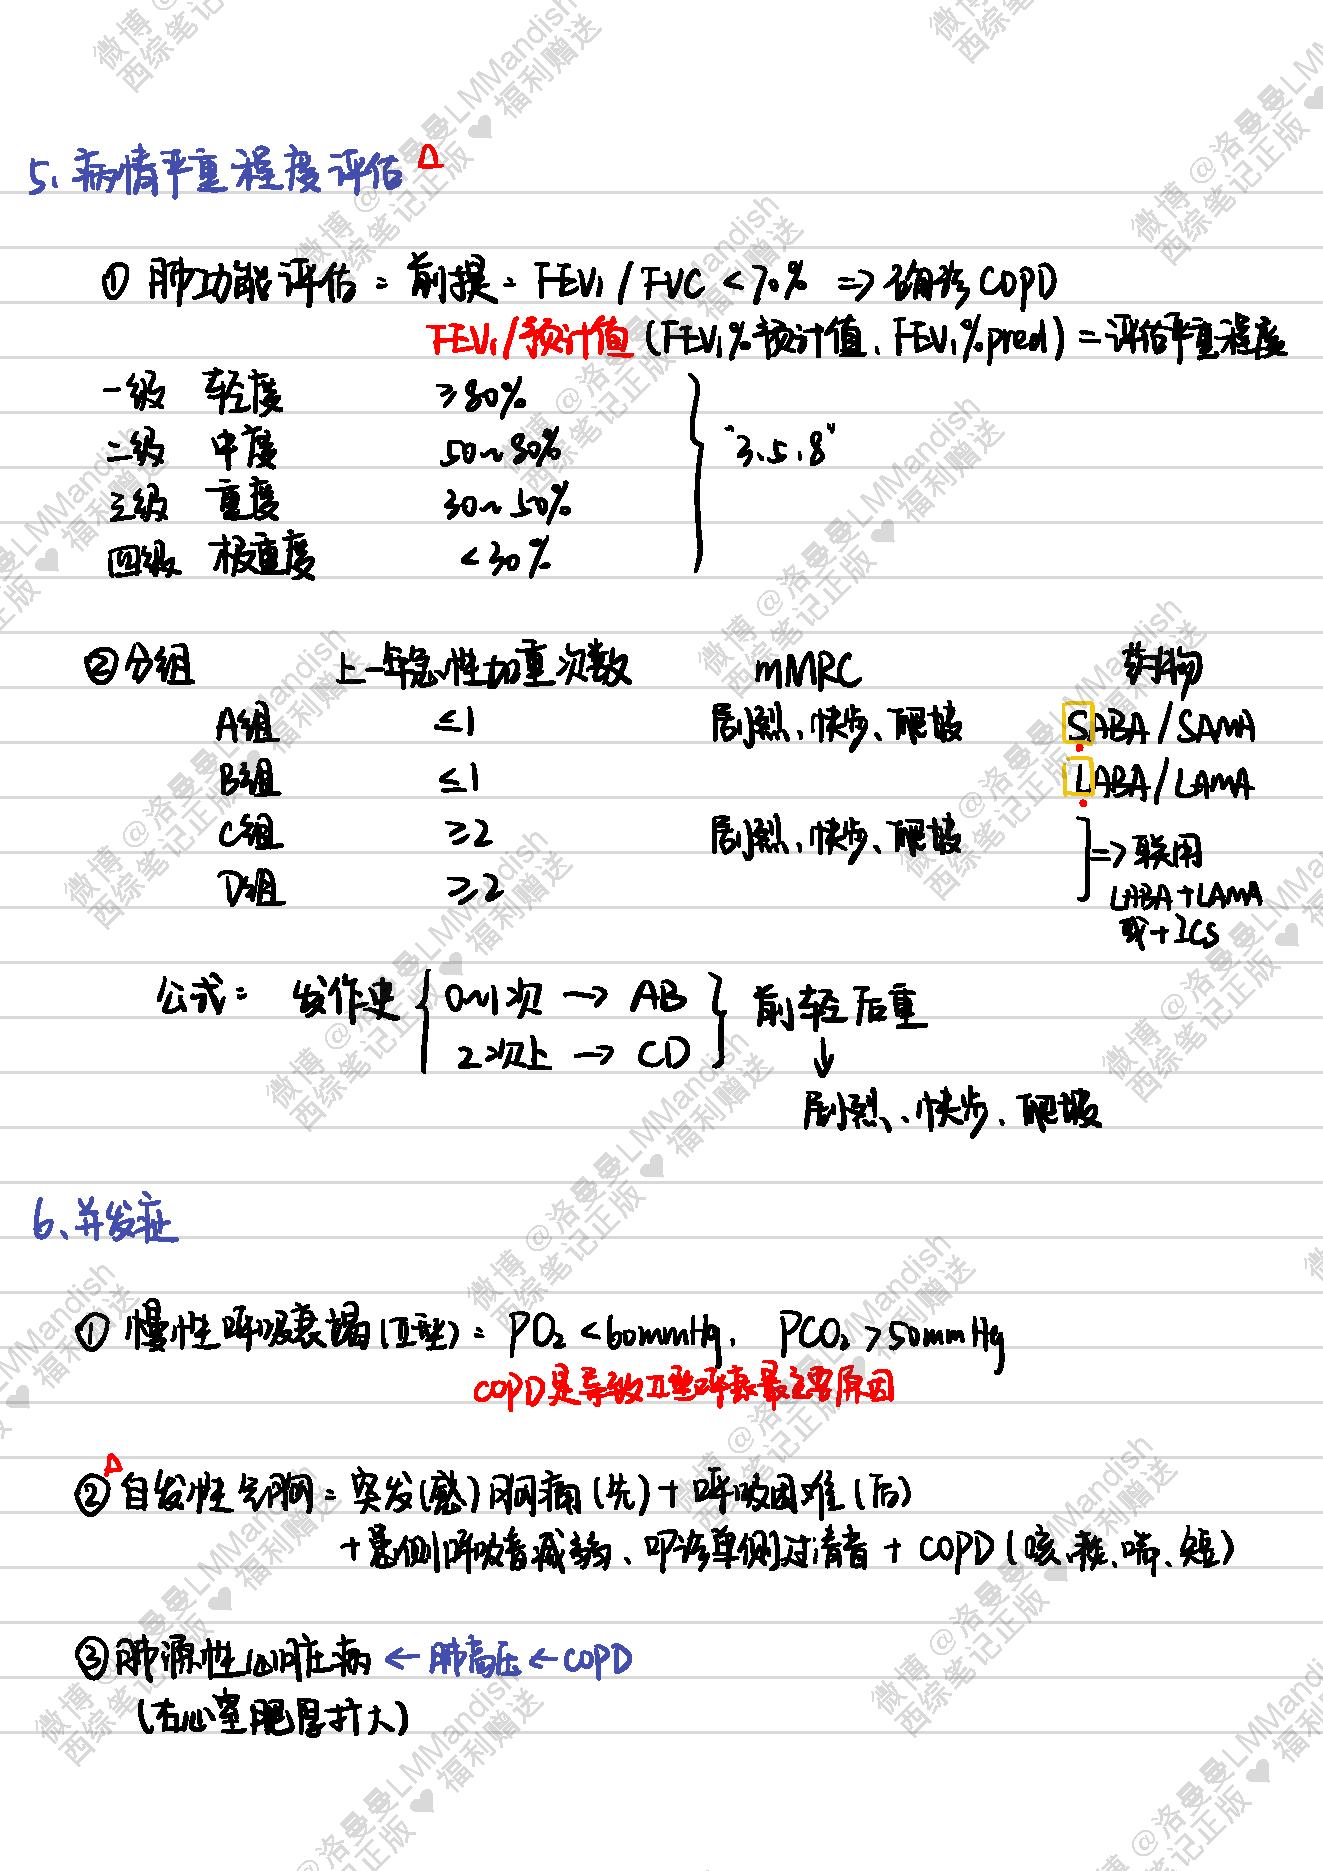 5、病情严重程度评估 △
① 肺功能评估：前提：FEV₁/FVC <70% => 确诊COPD
FEV₁/预计值（FEV₁%预计值、FEV₁%pred）= 评估严重程度
一级 轻度 ≥80%
二级 中度 50~80%
三级 重度 30~50%
四级 极重度 <30%
"3.5.8"
②分组 上一年急性加重次数 mMRC 药物
A组 ≤1 剧烈、快步、爬坡 SABA/SAMA
B组 ≤1 LABA/LAMA
C组 ≥2 剧烈、快步、爬坡
D组 ≥2
=> 联用
LABA+LAMA
或+ICS
公式： 发作史 { 0~1次 → AB } 前轻后重
2次上 → CD
↓
剧烈、快步、爬坡
6、并发症
① 慢性呼吸衰竭（Ⅱ型）：PO₂ <60mmHg， PCO₂ >50mmHg
COPD是导致Ⅱ型呼衰最主要原因
△
②自发性气胸：突发（感）胸痛（先）+ 呼吸困难（后）
+患侧呼吸音减弱、叩诊单侧过清音 + COPD（咳、痰、喘、短）
③肺源性心脏病 ← 肺高压 ← COPD
（右心室肥厚扩大）
微博 @洛曼曼LMMandish
西综笔记正版 ♥ 福利赠送